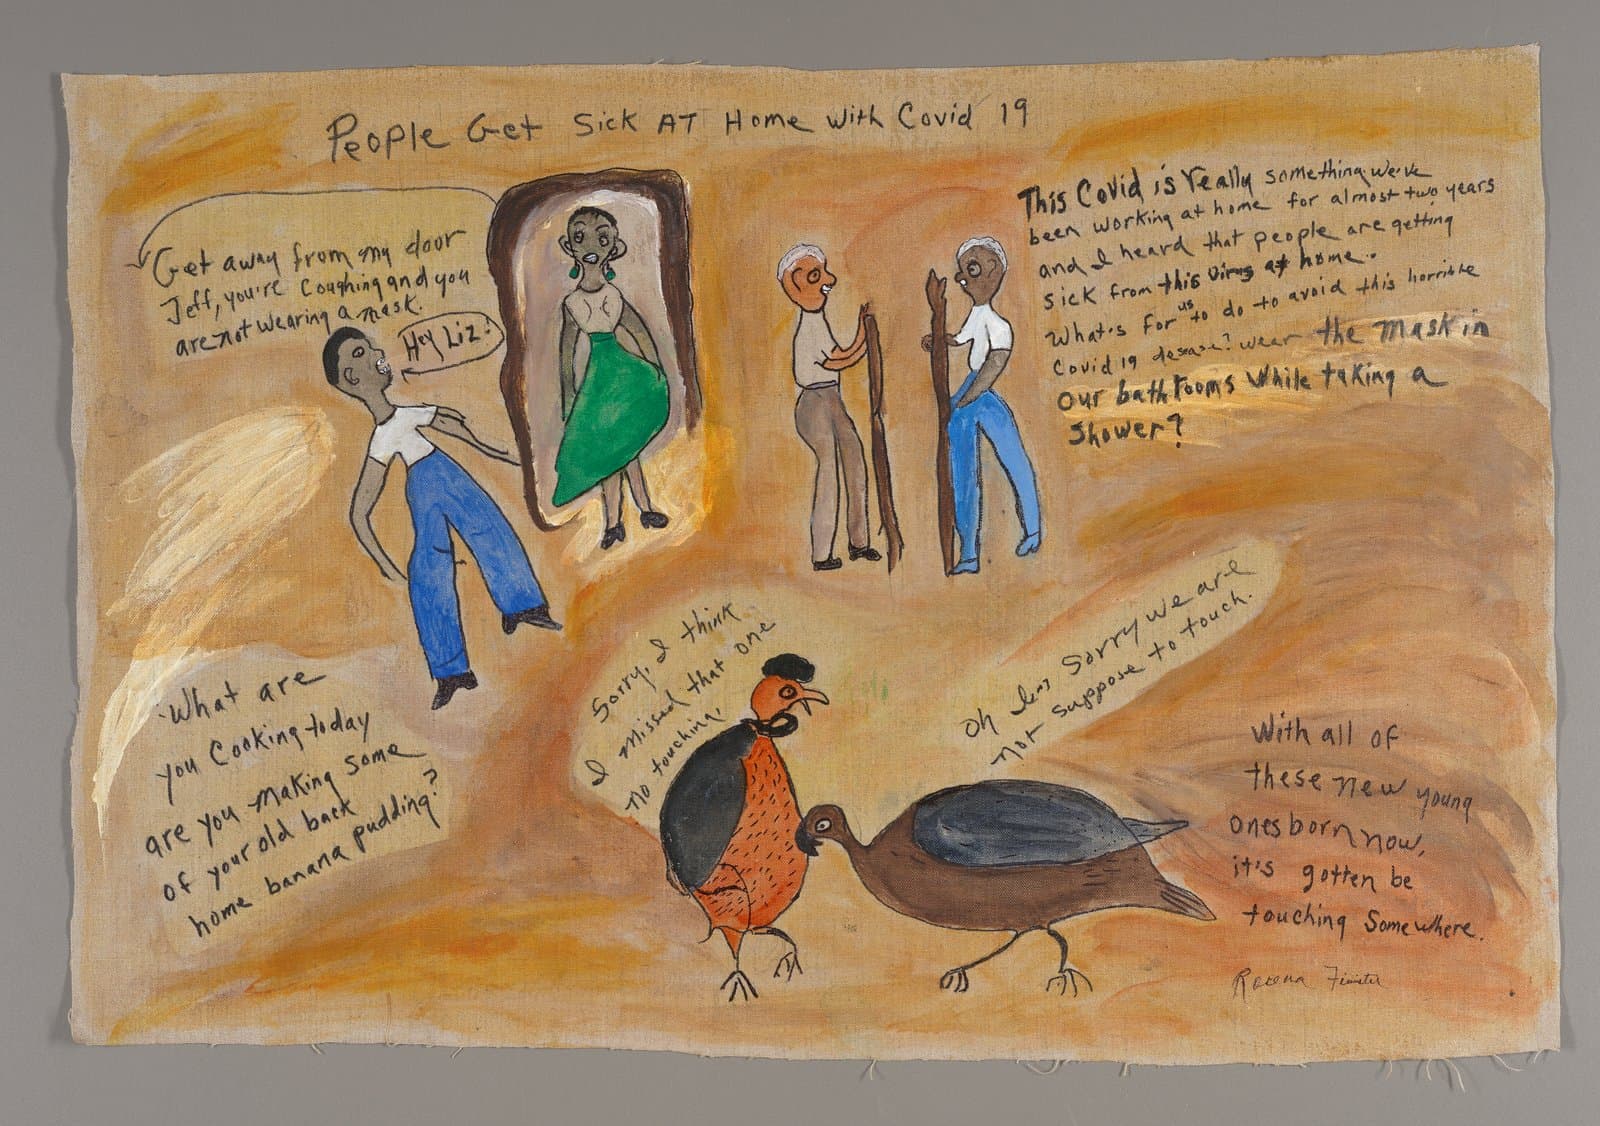 People Get Sick AT Home with Covid 19
Get away from my door
Jeff, you're Coughing and you
are not wearing a mask.
Hey Liz!
This Covid is really something we've
been working at home for almost two years
and I heard that people are getting
sick from this Virus at home.
What's for us to do to avoid this horrible
Covid 19 desase? wear the Mask in
Our bathrooms While taking a
Shower?
What are
you Cooking today
are you making some
of your old back
home banana pudding?
Sorry, I think
I missed that one
no touching,
Oh I'm Sorry we are
not suppose to touch.
With all of
these new young
ones born now,
it's gotten be
touching Somewhere.